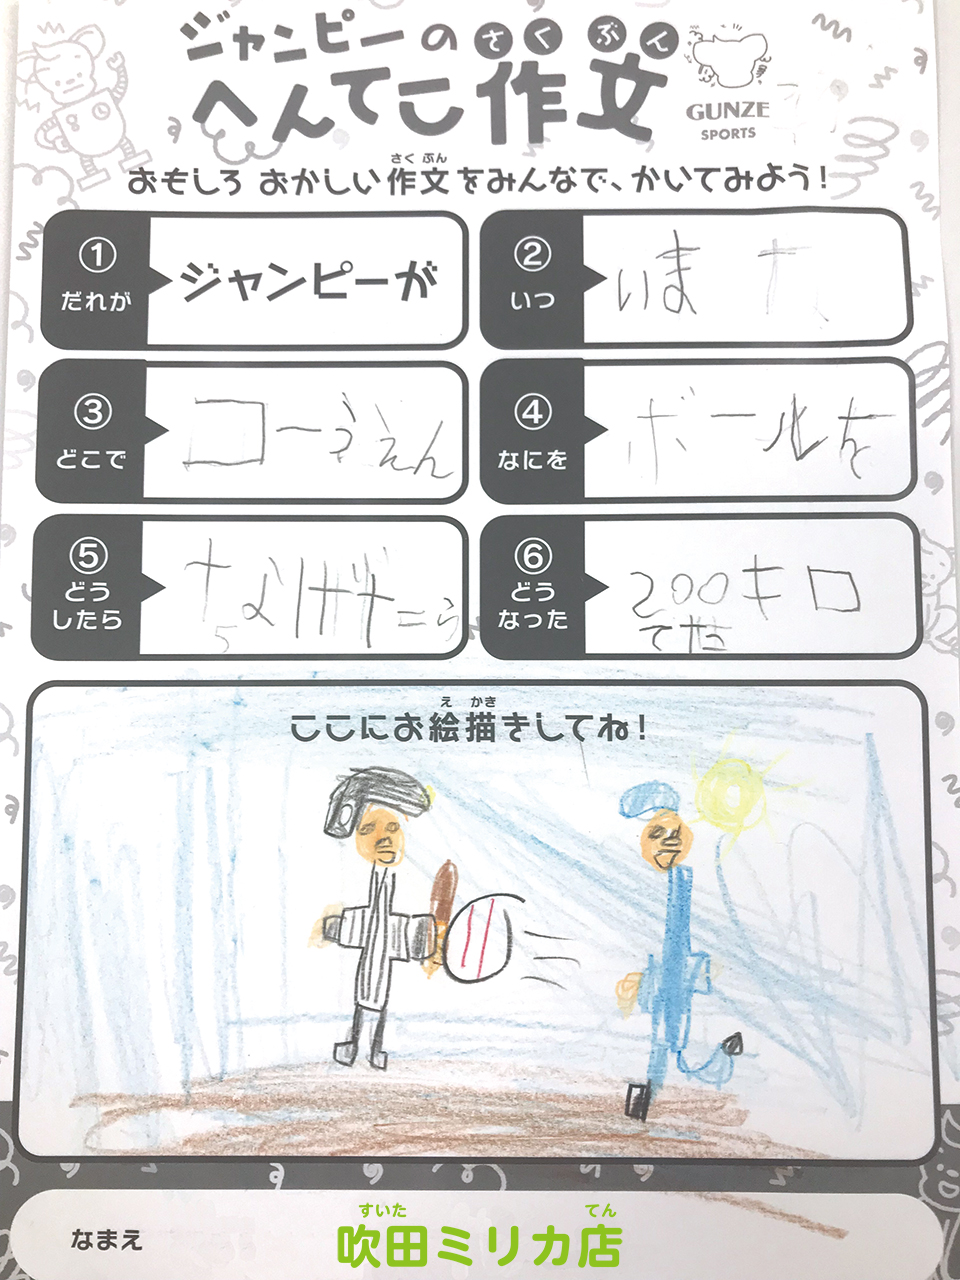 ジャンピーの さく ぶん
へんてこ作文
GUNZE
SPORTS
さく ぶん
おもしろ おかしい作文をみんなで、かいてみよう!
① だれが
ジャンピーが
② いつ
いま
③ どこで
コーうえん
④ なにを
ボールを
⑤ どう
したら
なげ
⑥ どう
なった
200キロ
でた
え かき
ここにお絵描きしてね!
なまえ
すいた てん
吹田ミリカ店